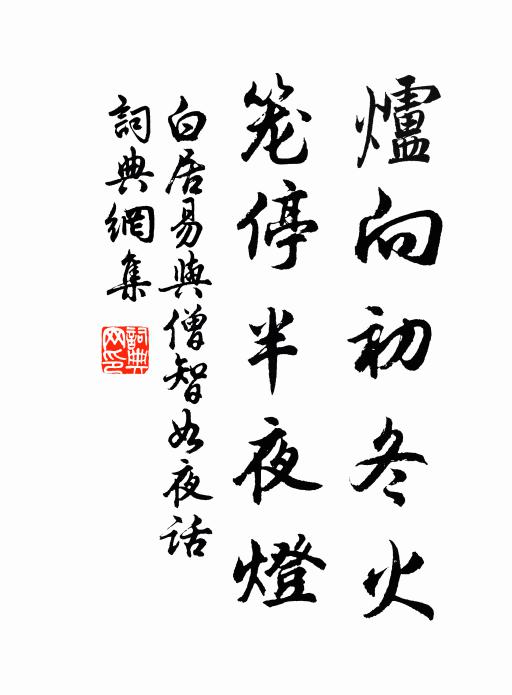 爐向初冬火
笼停半夜燈
白居易與僧智如夜话
詞典網集
詞典网印